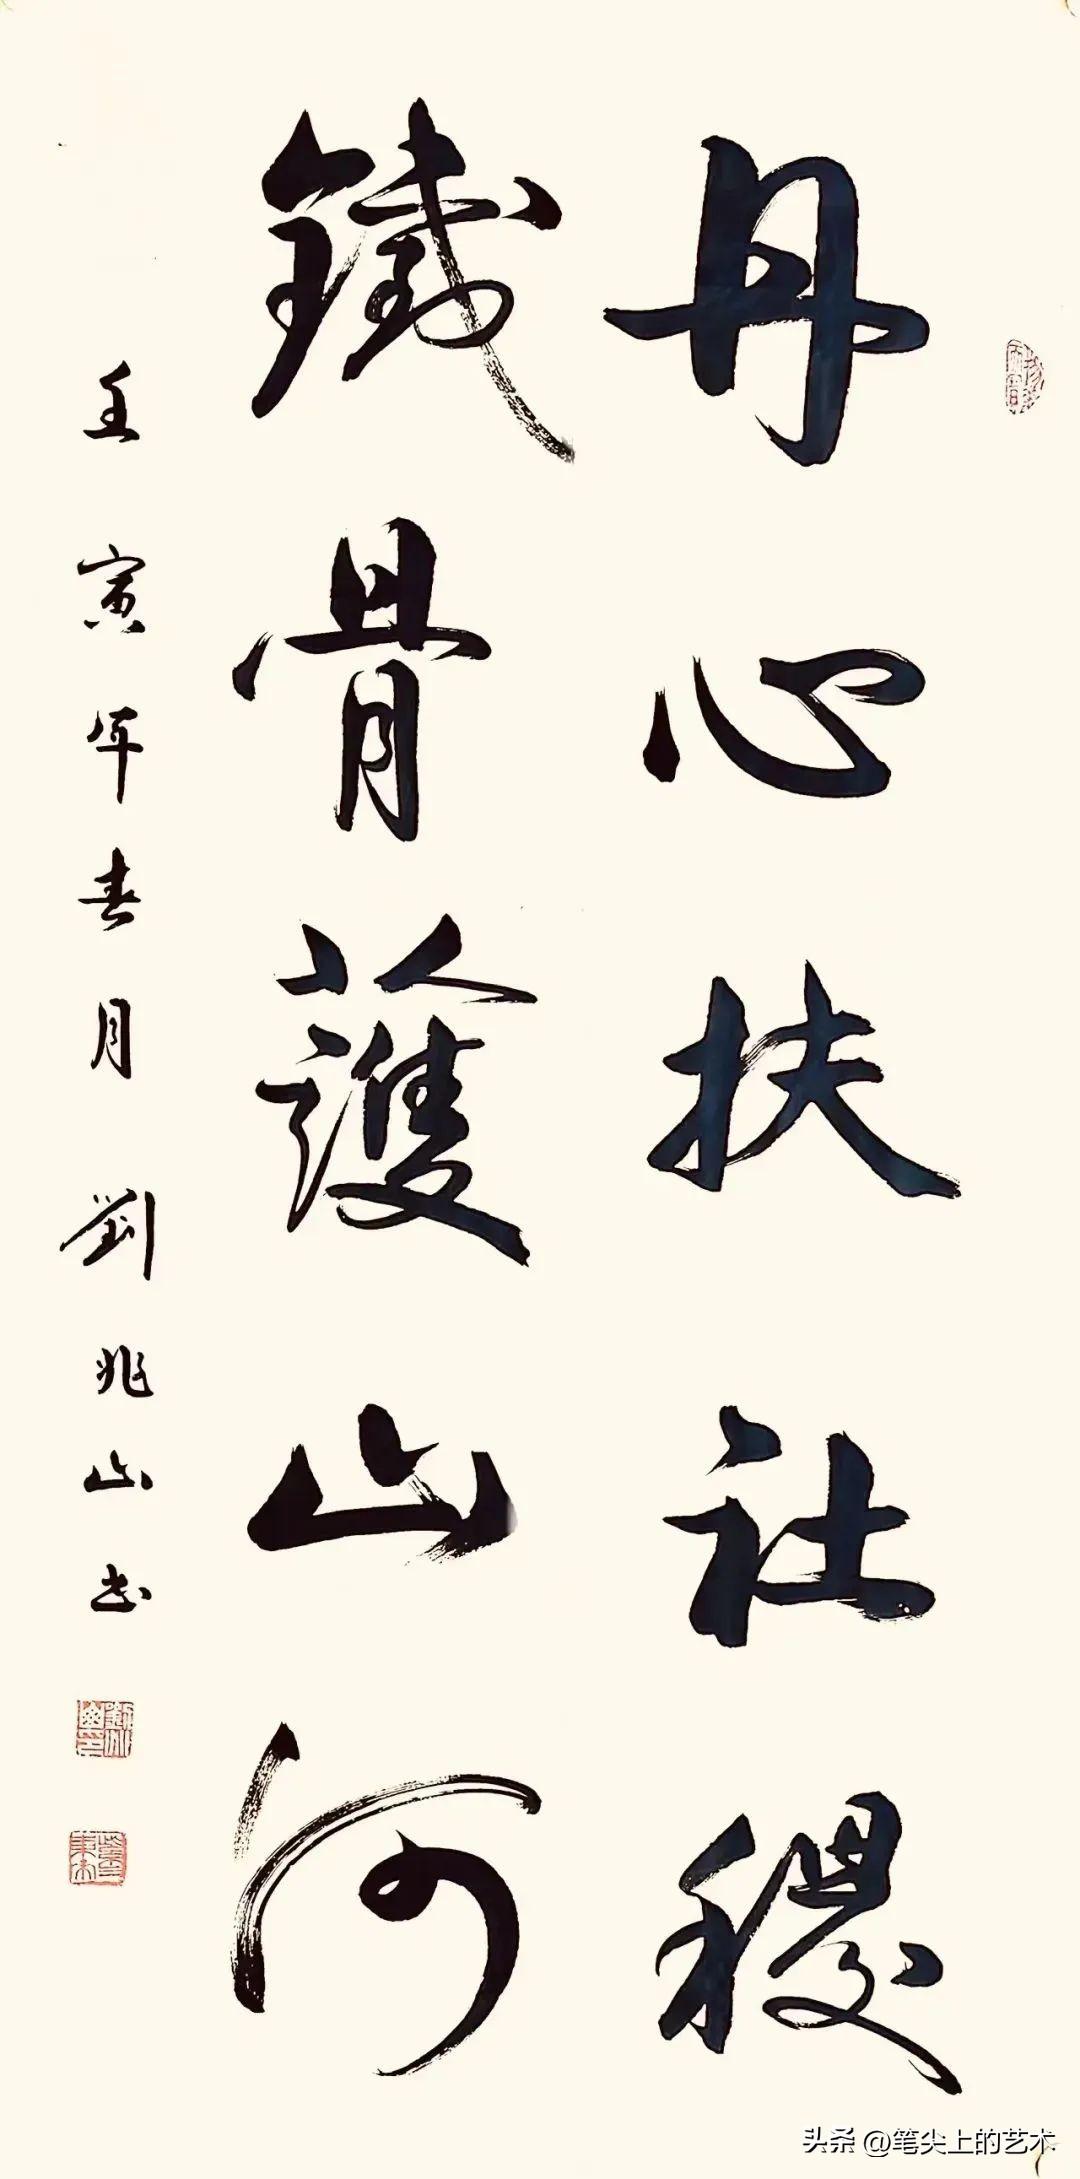 丹心扶社稷
鐵骨護山河
壬寅年春月劉兆山书
头条 @笔尖上的艺术